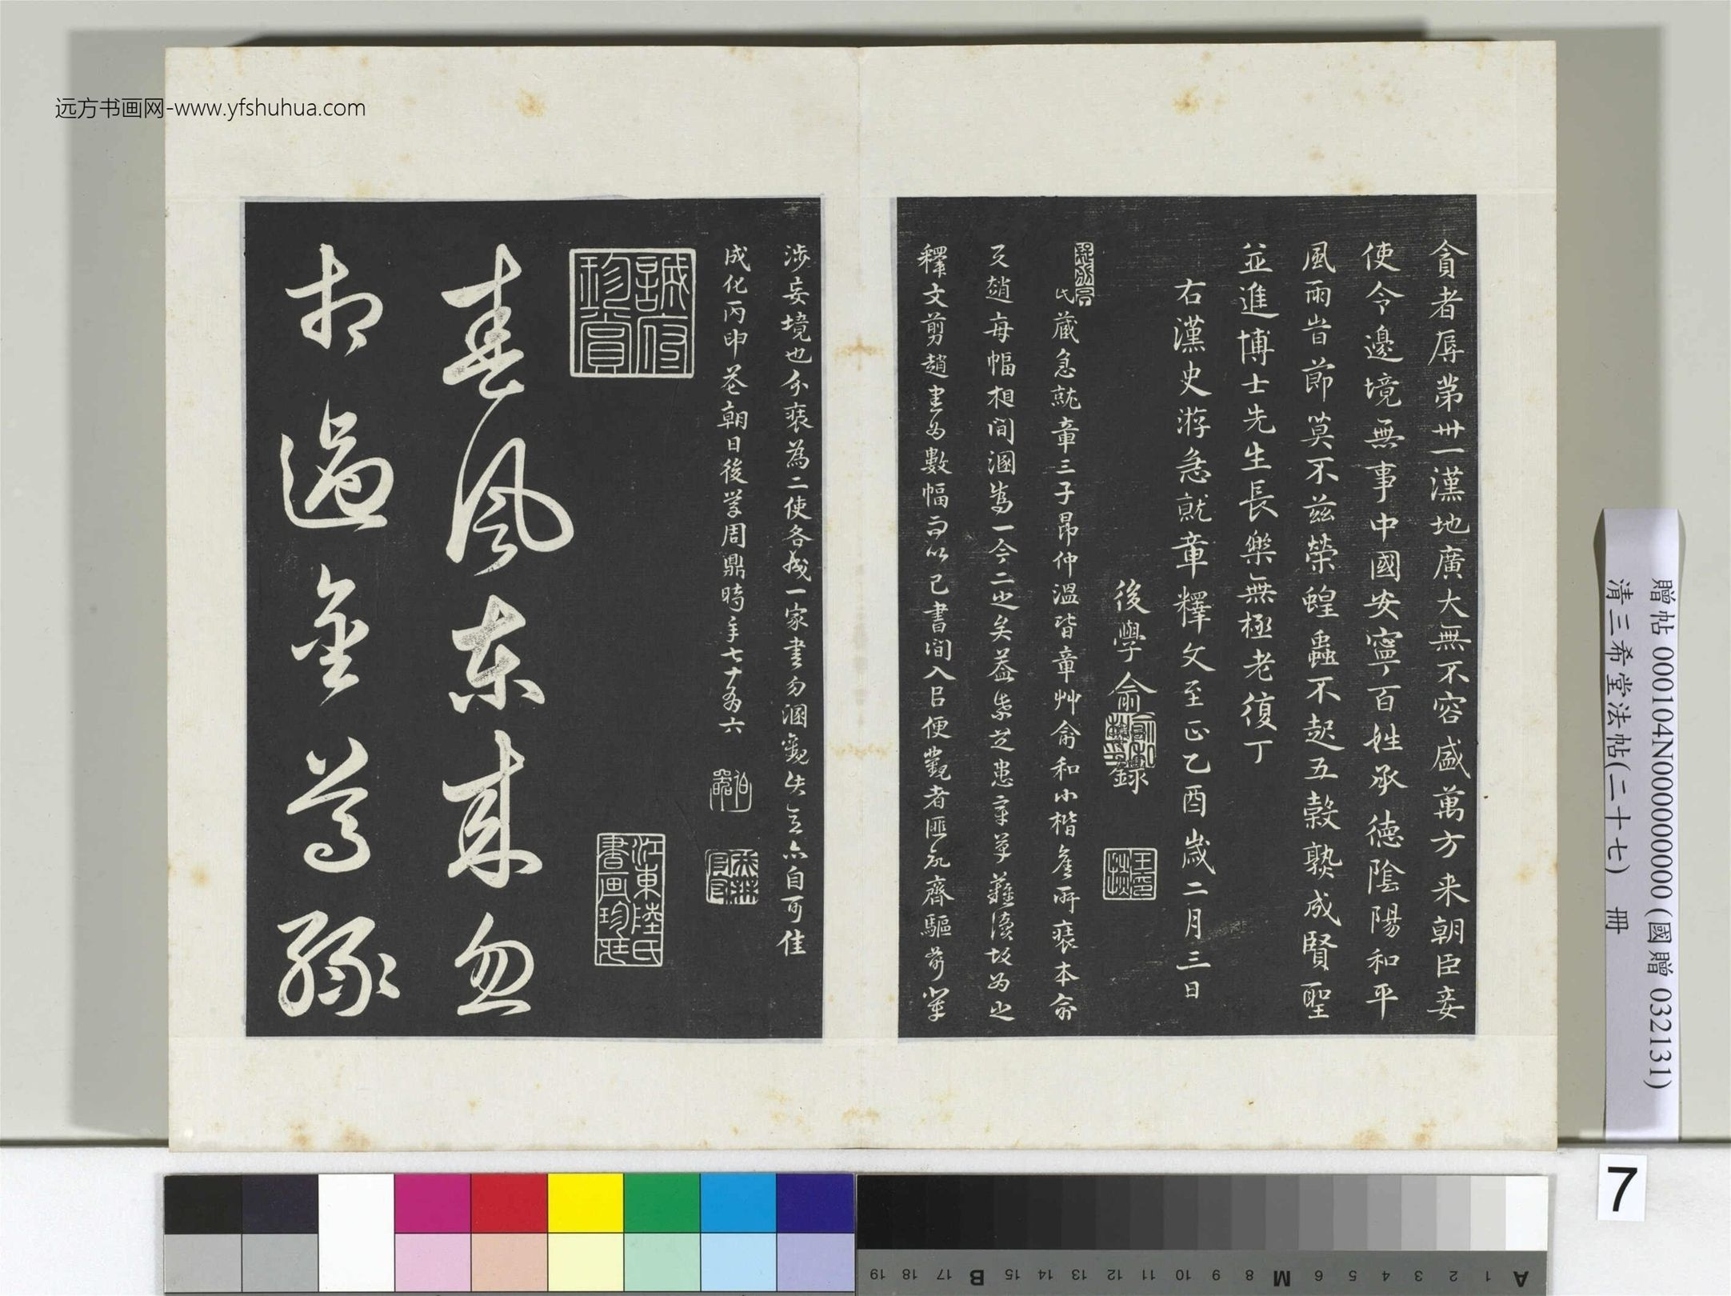 远方书画网-www.yfshuhua.com
貪者辱第卅一漢地廣大無不容盛萬方来朝臣妾
使令邊境無事中國安寧百姓承德陰陽和平
風雨皆節莫不茲榮蝗蟲不起五穀孰成賢聖
並進博士先生長樂無極老復丁
右漢史游急就章釋文至正乙酉歲二月三日
後學俞
錄
氏藏急就章三子昂仲溫皆章艸俞和小楷
裝本俞
又趙每幅相間溷為一今二之矣蓋
章草難讀故為之
釋文剪趙書為數幅而以己書間入以便觀者匪敢齊驅前輩
涉妄境也分裝為二使各成一家書勿溷觀失之亦自可佳
成化丙申花朝日後學周鼎時年七十有六
誠府珍賞
江東陸氏書画珍玩
春風東來忽
相過金尊淥
贈帖 000104N000000000 (國贈 032131)
清三希堂法帖(二十七) 冊
7
A 1 2 3 4 5 6 M 8 9 10 11 12 13 14 15 B 17 18 19